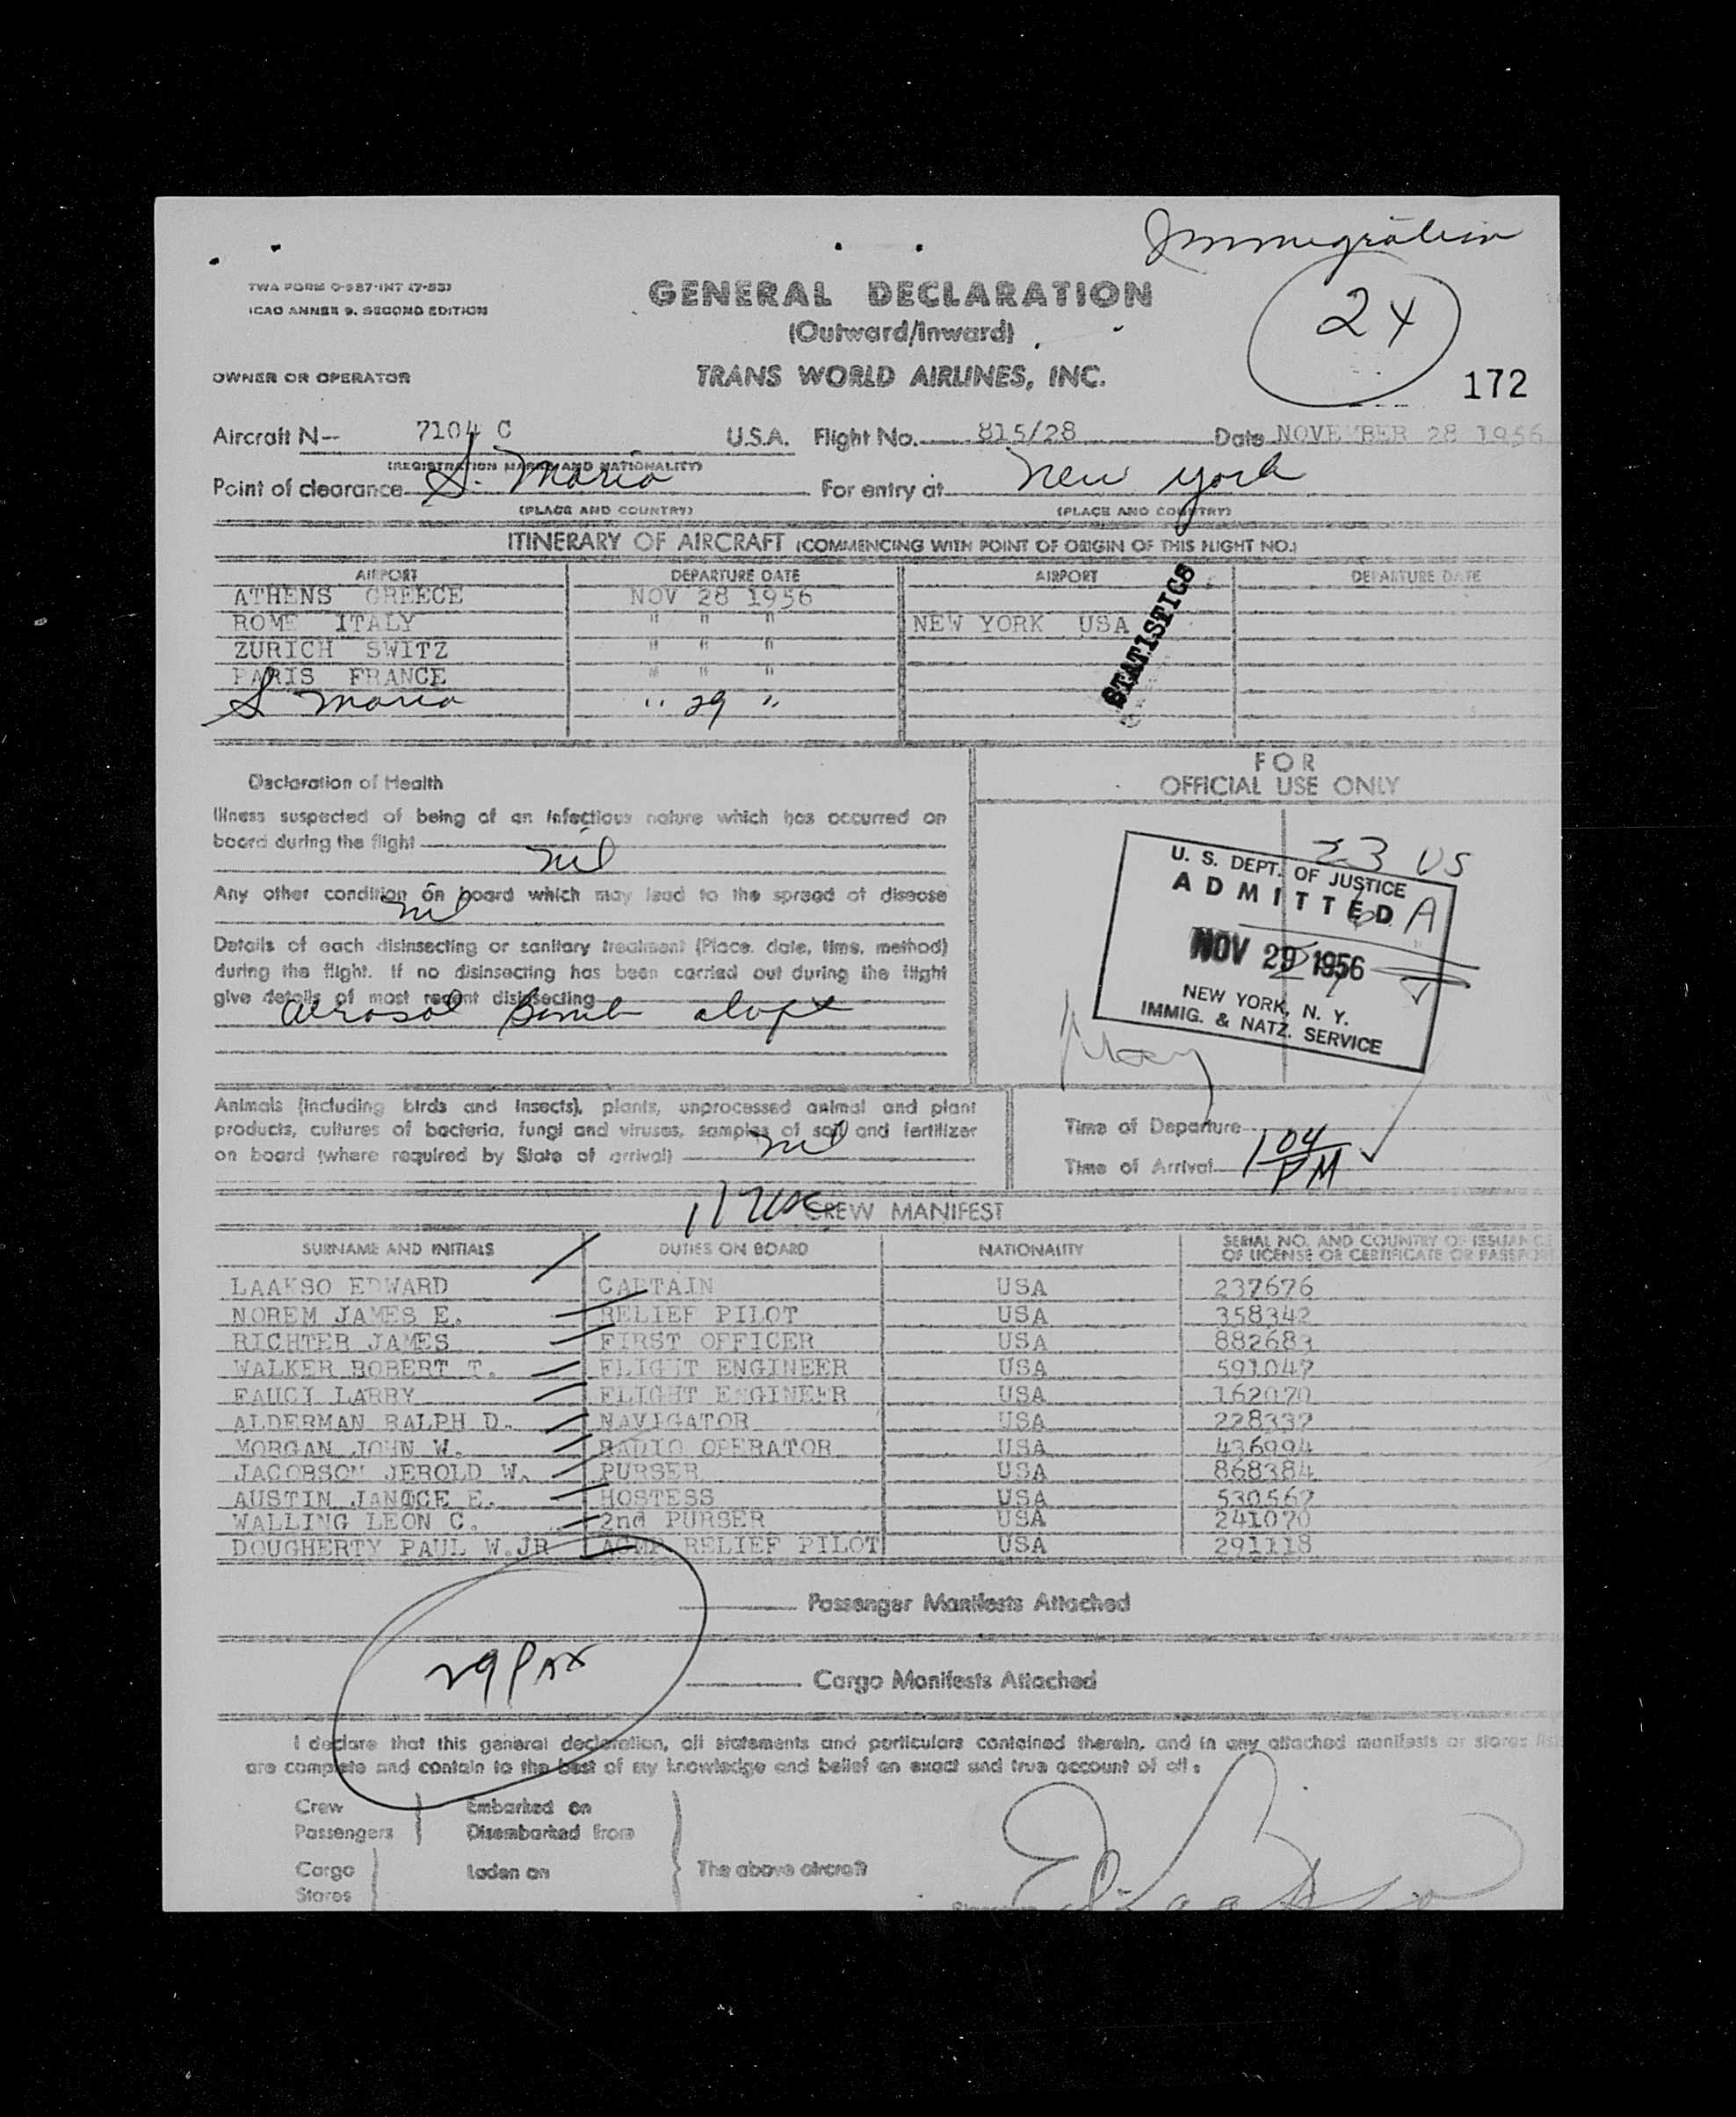 Immigration
TWA FORM O-987-INT (7-53)
ICAO ANNEX 9. SECOND EDITION
GENERAL DECLARATION
(Outward/Inward)
24
OWNER OR OPERATOR
TRANS WORLD AIRLINES, INC.
172
Aircraft N-- 7104 C U.S.A. Flight No. 815/28 Date NOVEMBER 28 1956
(REGISTRATION MARKS AND NATIONALITY)
Point of clearance S. Maria For entry at New York
(PLACE AND COUNTRY) (PLACE AND COUNTRY)
ITINERARY OF AIRCRAFT (COMMENCING WITH POINT OF ORIGIN OF THIS FLIGHT NO.)
AIRPORT DEPARTURE DATE AIRPORT DEPARTURE DATE
ATHENS GREECE NOV 28 1956
ROME ITALY " " " NEW YORK USA
ZURICH SWITZ " " "
PARIS FRANCE " " "
S Maria " 29 "
STATISTICS
Declaration of Health
FOR
OFFICIAL USE ONLY
Illness suspected of being of an infectious nature which has occurred on
board during the flight
nil
Any other condition on board which may lead to the spread of disease
nil
Details of each disinsecting or sanitary treatment (Place, date, time, method)
during the flight. If no disinsecting has been carried out during the flight
give details of most recent disinsecting
Aerosol Bomb aloft
23 US
U. S. DEPT. OF JUSTICE
ADMITTED
A
NOV 29 1956
NEW YORK, N. Y.
IMMIG. & NATZ. SERVICE
Animals (including birds and insects), plants, unprocessed animal and plant
products, cultures of bacteria, fungi and viruses, samples of soil and fertilizer
on board (where required by State of arrival) nil
Time of Departure
Time of Arrival 1 04 PM
11
CREW MANIFEST
SURNAME AND INITIALS DUTIES ON BOARD NATIONALITY SERIAL NO. AND COUNTRY OF ISSUANCE
OF LICENSE OR CERTIFICATE OR PASSPORT
LAAKSO EDWARD CAPTAIN USA 237676
NOREM JAMES E. RELIEF PILOT USA 358342
RICHTER JAMES FIRST OFFICER USA 882683
WALKER ROBERT T. FLIGHT ENGINEER USA 591047
FAUCI LARRY FLIGHT ENGINEER USA 162070
ALDERMAN RALPH D. NAVIGATOR USA 228337
MORGAN JOHN W. RADIO OPERATOR USA 436994
JACOBSON JEROLD W. PURSER USA 868384
AUSTIN JANICE E. HOSTESS USA 530567
WALLING LEON C. 2nd PURSER USA 241070
DOUGHERTY PAUL W.JR RELIEF PILOT USA 291118
Passenger Manifests Attached
29 PAX
Cargo Manifests Attached
I declare that this general declaration, all statements and particulars contained therein, and in any attached manifests or stores
are complete and contain to the best of my knowledge and belief an exact and true account of all:
Crew Embarked on
Passengers Disembarked from
Cargo Laden on The above aircraft
Stores
E Laakso